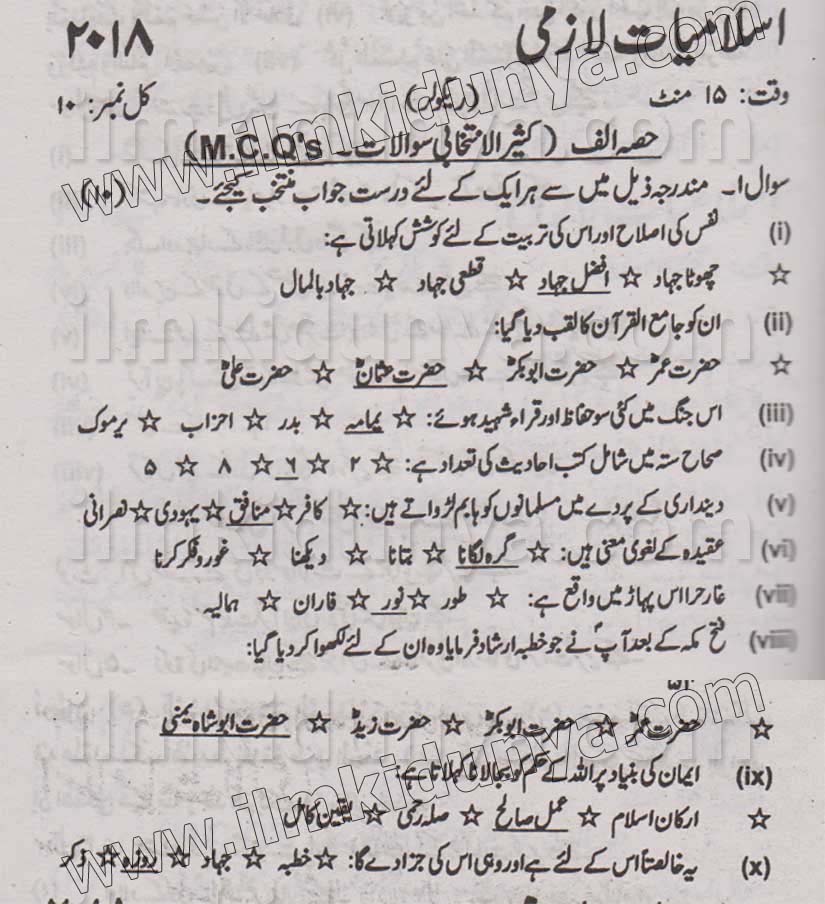 اسلامیات لازمی ۲۰۱۸
وقت: ۱۵ منٹ (ریگولر) کل نمبر: ۱۰
حصہ الف (کثیر الانتخابی سوالات۔ M.C.Q's)
سوال ا۔ مندرجہ ذیل میں سے ہر ایک کے لئے درست جواب منتخب کیجئے۔ (۱۰)
(i) نفس کی اصلاح اور اس کی تربیت کے لئے کوشش کہلاتی ہے:
☆ چھوٹا جہاد ☆ افضل جہاد ☆ قطعی جہاد ☆ جہاد بالمال
(ii) ان کو جامع القرآن کا لقب دیا گیا:
☆ حضرت عمرؓ ☆ حضرت ابوبکرؓ ☆ حضرت عثمانؓ ☆ حضرت علیؓ
(iii) اس جنگ میں کئی سو حفاظ اور قراء شہید ہوئے: ☆ یمامہ ☆ بدر ☆ احزاب ☆ یرموک
(iv) صحاح ستہ میں شامل کتب احادیث کی تعداد ہے: ☆ ۲ ☆ ۶ ☆ ۸ ☆ ۵
(v) دینداری کے پردے میں مسلمانوں کو باہم لڑواتے ہیں: ☆ کافر ☆ منافق ☆ یہودی ☆ نصرانی
(vi) عقیدہ کے لغوی معنی ہیں: ☆ گرہ لگانا ☆ بتانا ☆ دیکھنا ☆ غور و فکر کرنا
(vii) غار حرا اس پہاڑ میں واقع ہے: ☆ طور ☆ نور ☆ فاران ☆ ہمالیہ
(viii) فتح مکہ کے بعد آپؐ نے جو خطبہ ارشاد فرمایا وہ ان کے لئے لکھوا کر دیا گیا:
☆ حضرت عمرؓ ☆ حضرت ابوبکرؓ ☆ حضرت زیدؓ ☆ حضرت ابو شاہ یمنی
(ix) ایمان کی بنیاد پر اللہ کے حکم کو بجا لانا کہلاتا ہے:
☆ ارکان اسلام ☆ عمل صالح ☆ صلہ رحمی ☆ یقین کامل
(x) یہ خالصتاً اس کے لئے ہے اور وہی اس کی جزا دے گا: ☆ خطبہ ☆ جہاد ☆ روزہ ☆ ذکر
www.ilmkidunya.com
ilmkidunya.com
ilmkidunya.com
ilmkidunya.com
ilmkidunya.com
www.ilmkidunya.com